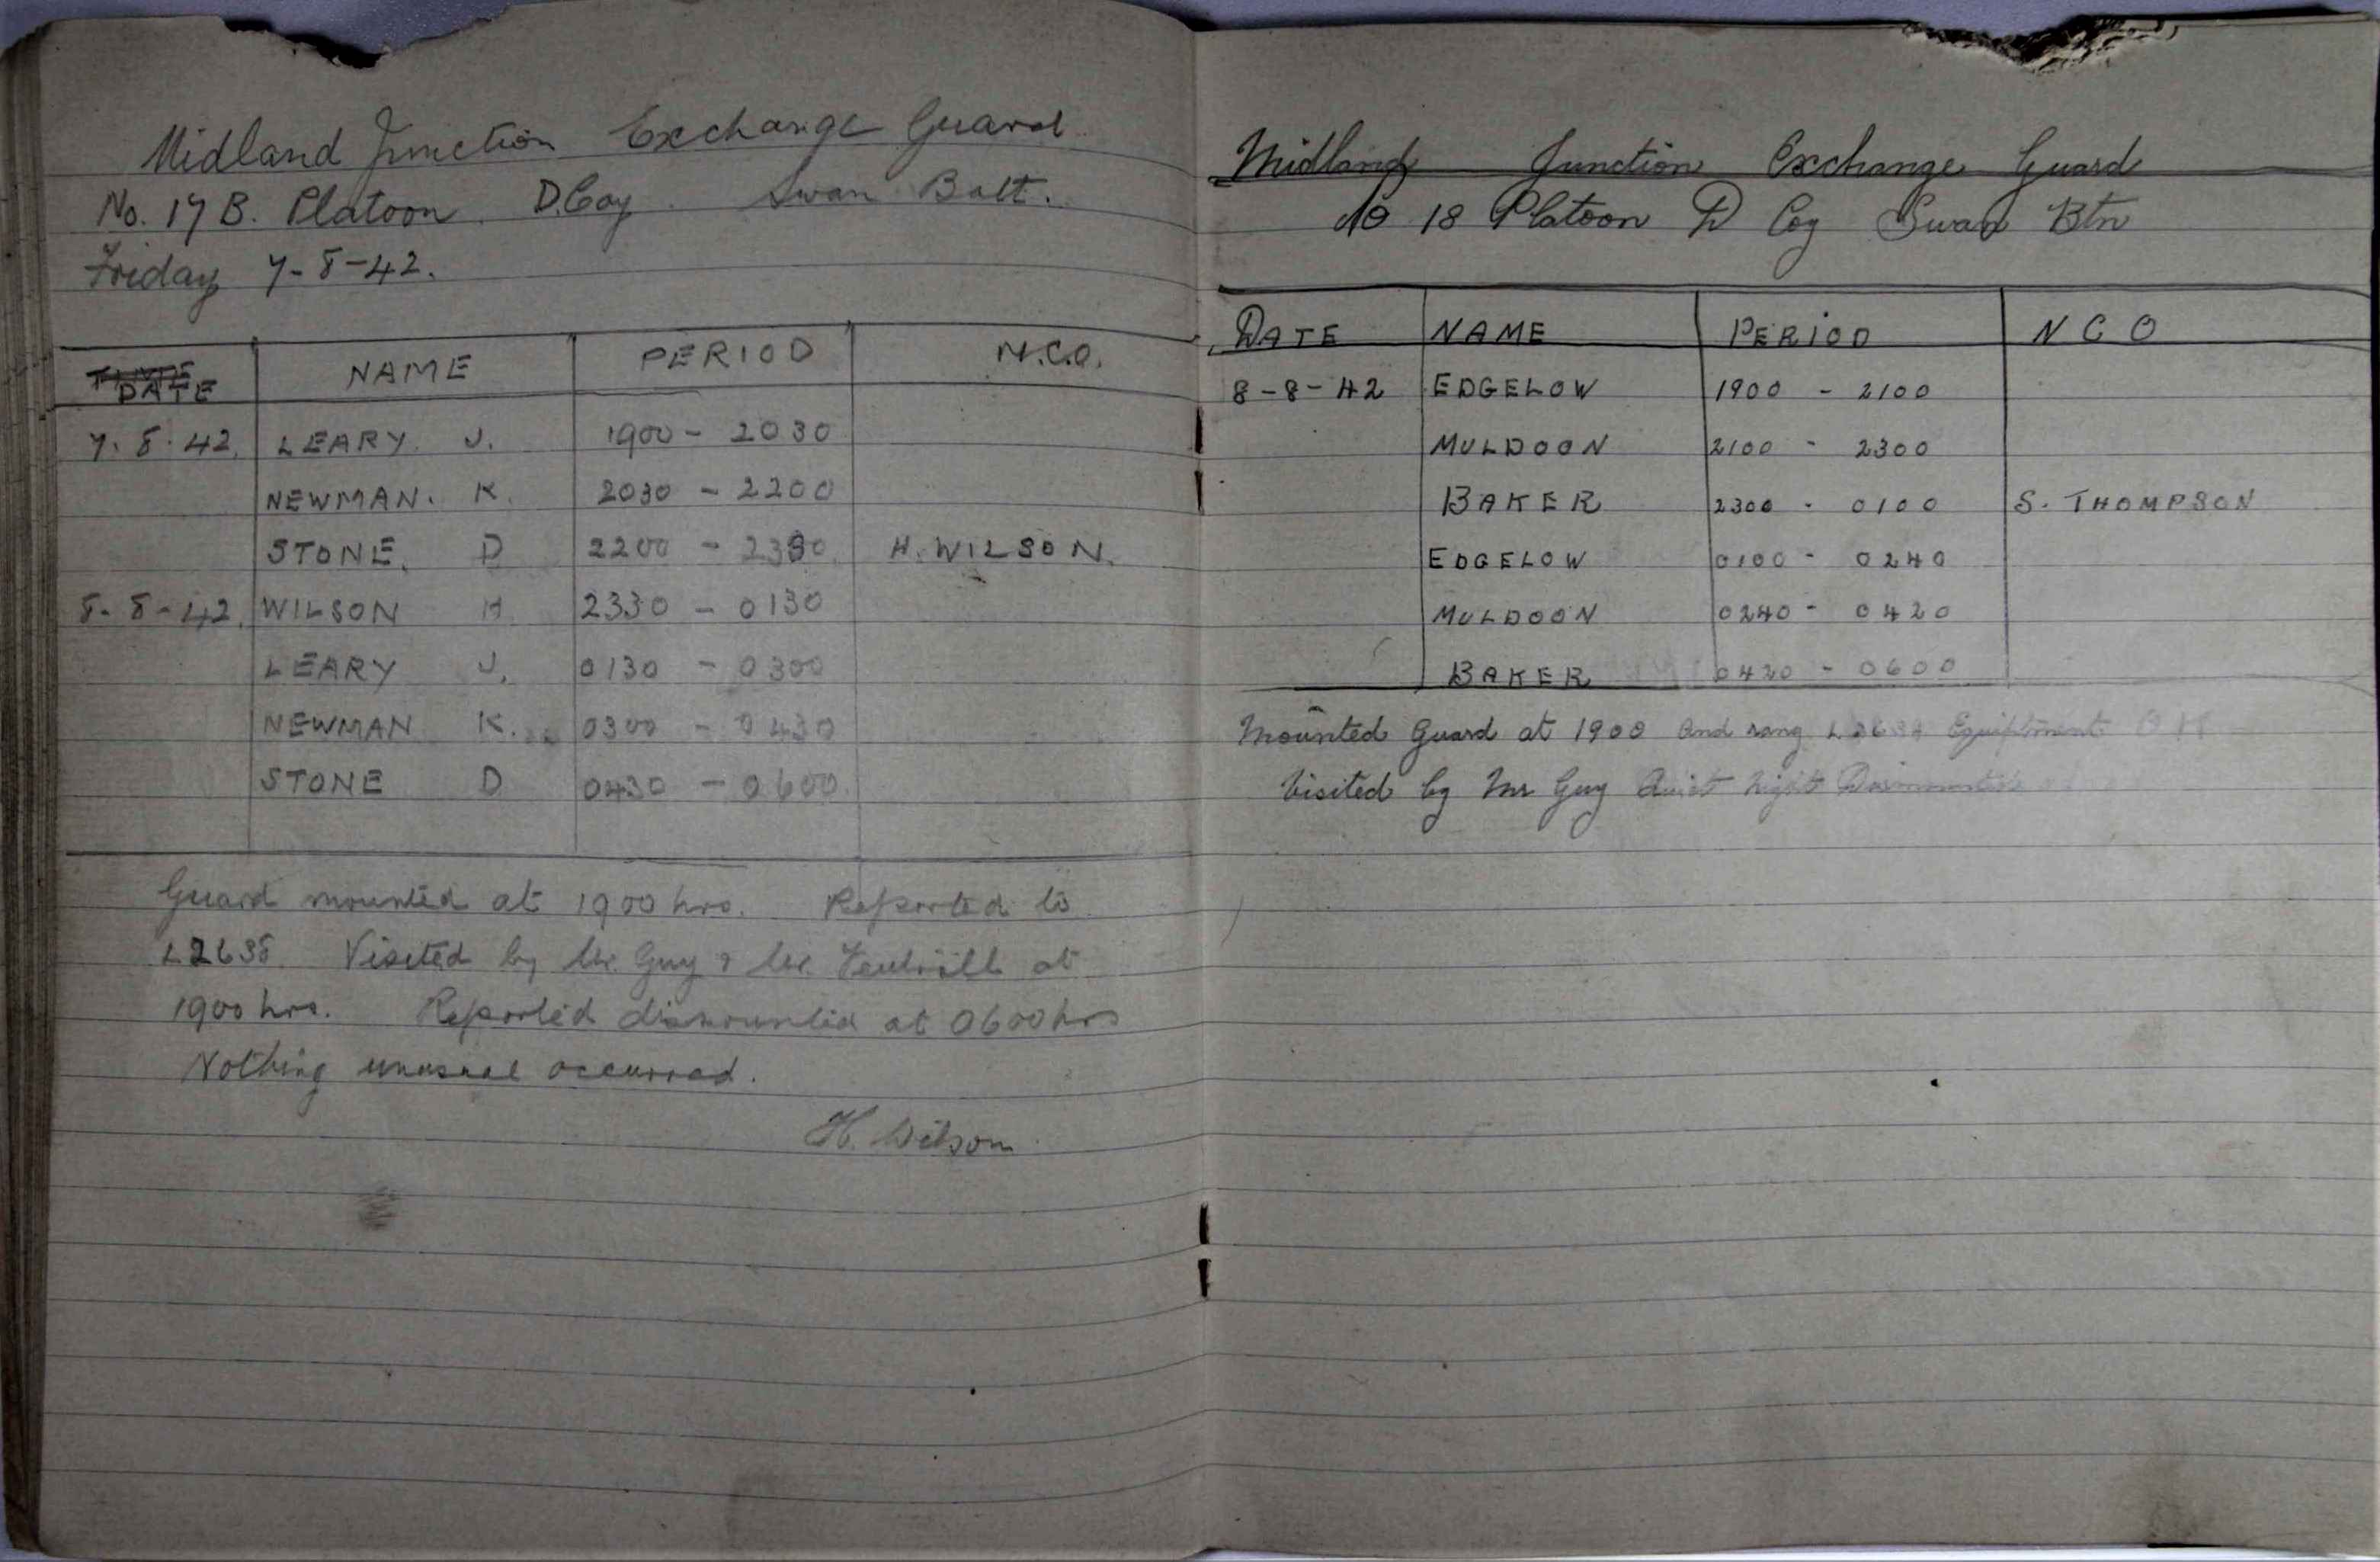 Midland Junction Exchange Guard
No. 17 B. Platoon. D. Coy. Swan Batt.
Friday 7-8-42.
DATE NAME PERIOD N.C.O.
7.8.42. LEARY. J. 1900 - 2030
NEWMAN. K. 2030 - 2200
STONE. D 2200 - 2330 H. WILSON.
8-8-42. WILSON H 2330 - 0130
LEARY J. 0130 - 0300
NEWMAN K. 0300 - 0430
STONE D 0430 - 0600.
Guard mounted at 1900 hrs. Reported to
L2638. Visited by Mr. Guy & Mr. at
1900 hrs. Reported dismounted at 0600 hrs
Nothing unusual occurred.
H. Wilson
Midland Junction Exchange Guard
No 18 Platoon D Coy Swan Btn
DATE NAME PERIOD N C O
8-8-42 EDGELOW 1900 - 2100
MULDOON 2100 - 2300
BAKER 2300 - 0100 S. THOMPSON
EDGELOW 0100 - 0240
MULDOON 0240 - 0420
BAKER 0420 - 0600
Mounted Guard at 1900 and rang Equiptment OK
Visited by Mr Guy Quiet night